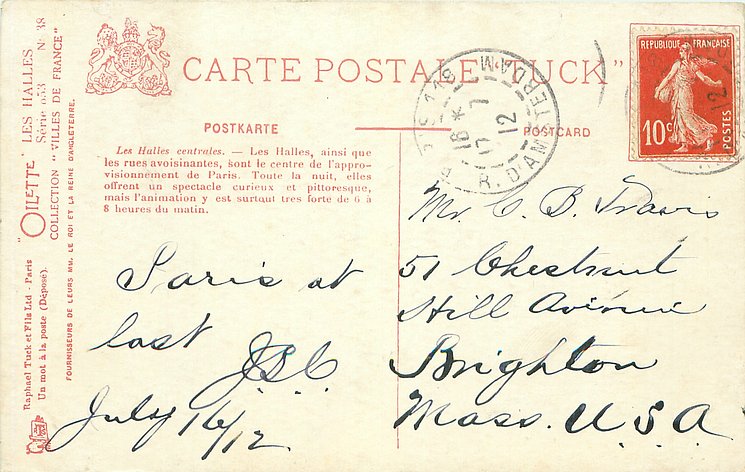 CARTE POSTALE "TUCK"
POSTKARTE
POSTCARD
Les Halles centrales. — Les Halles, ainsi que
les rues avoisinantes, sont le centre de l'appro-
visionnement de Paris. Toute la nuit, elles
offrent un spectacle curieux et pittoresque,
mais l'animation y est surtout très forte de 6 à
8 heures du matin.
Paris at
last J.S.C
July 16/12.
Mr. C. B. Travis
51 Chestnut
Hill Avenue
Brighton
Mass. U.S.A
REPUBLIQUE FRANÇAISE
10c
POSTES
118
R. D'AMSTERDAM
18 *
17 7
12
12
"OILETTE" LES HALLES
Série 653 No 38
COLLECTION "VILLES DE FRANCE"
Raphael Tuck et Fils Ltd - Paris
Un mot à la poste (Déposé).
FOURNISSEURS DE LEURS MM. LE ROI ET LA REINE D'ANGLETERRE.